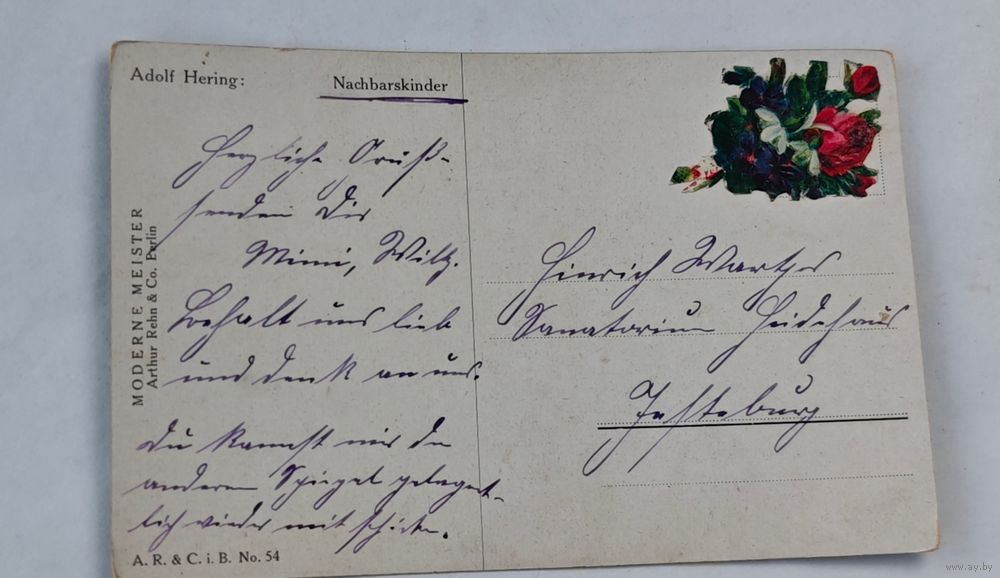 Adolf Hering:
Nachbarskinder
Herzliche Grüße
senden Dir
Mimi, Willy.
Behalt uns lieb
und denk an uns.
Du kannst mir den
anderen Spiegel gelegent-
lich wieder mit schicken.
MODERNE MEISTER
Arthur Rehn & Co. Berlin
A. R. & C. i. B. No. 54
Hinrich
Sanatorium Heidehaus
Jesteburg
www.ay.by